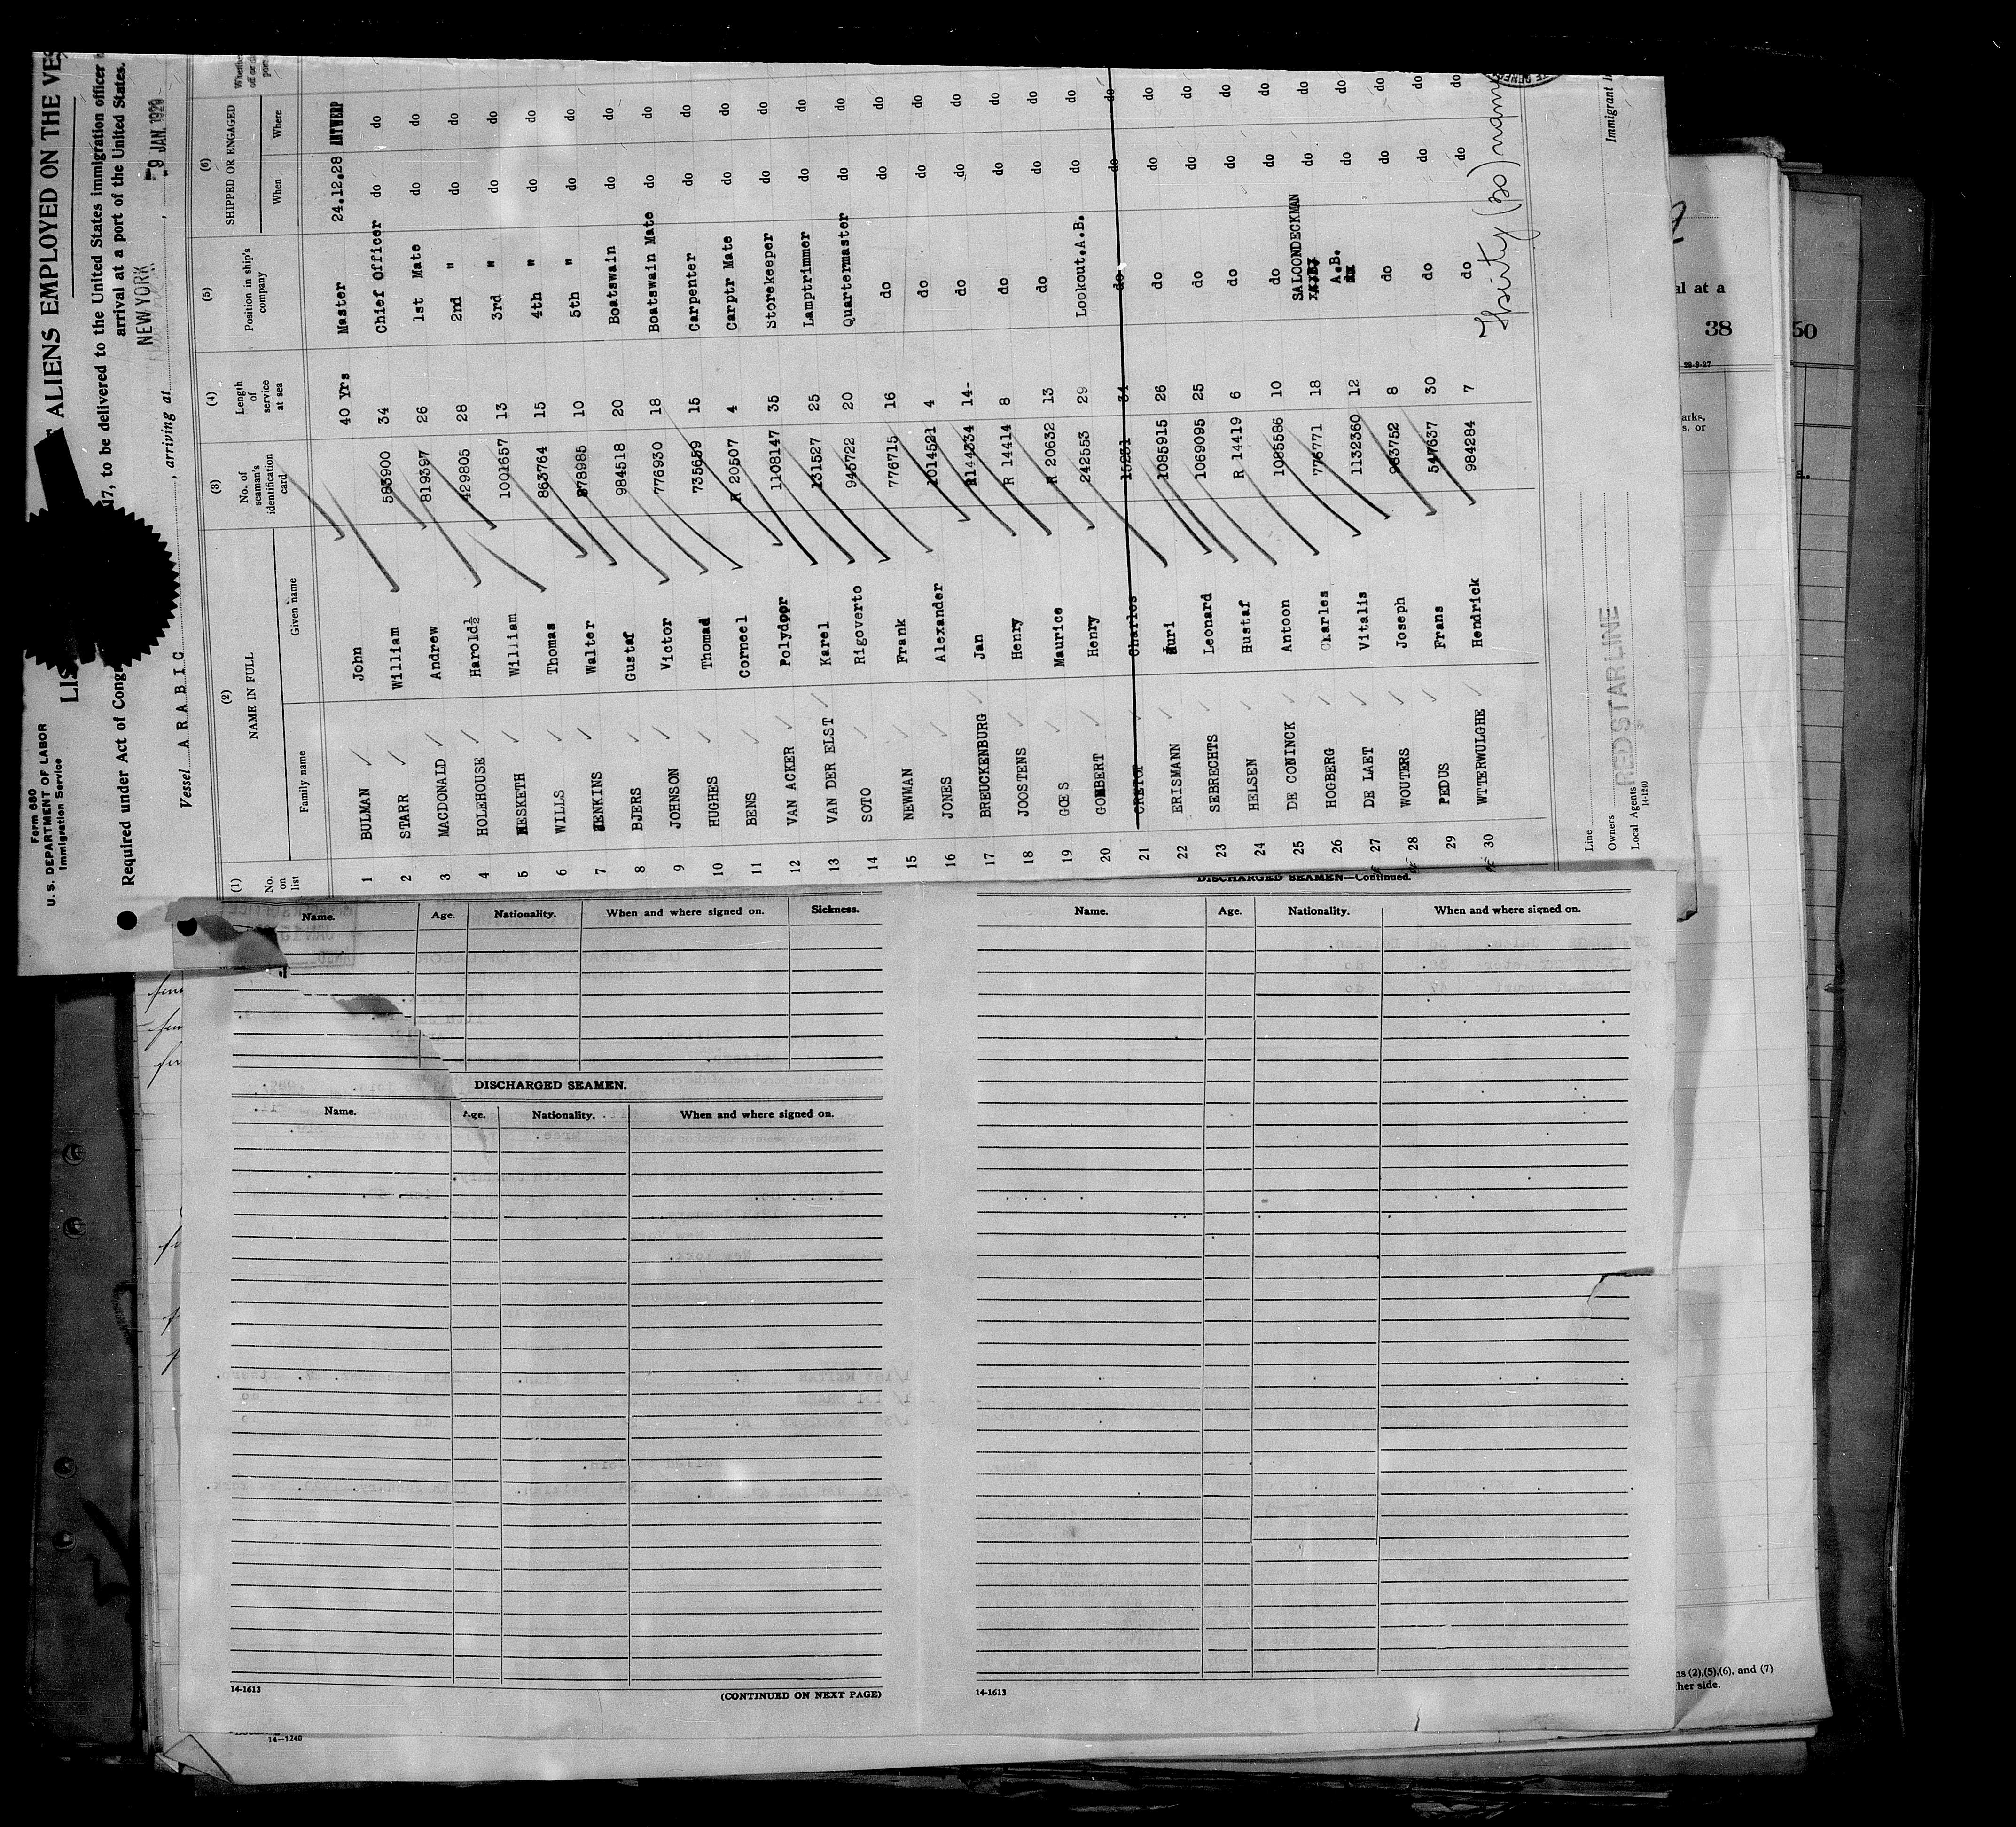 Form 680
U. S. DEPARTMENT OF LABOR
Immigration Service
ALIENS EMPLOYED ON THE
Required under Act of
17, to be delivered to the United States immigration officer
arrival at a port of the United States.
Vessel ARABIC, arriving at NEW YORK, 9 JAN. 1929
(1) (2) (3) (4) (5) (6)
No. on list NAME IN FULL No. of seaman's identification card Length of service at sea Position in ship's company SHIPPED OR ENGAGED
Family name Given name When Where
1 BULMAN John 40 Yrs Master 24.12.28 ANTWERP
2 STARR William 583900 34 Chief Officer do do
3 MACDONALD Andrew 819397 26 1st Mate do do
4 HOLEHOUSE Harold 429805 28 2nd " do do
5 HESKETH William 1001657 13 3rd " do do
6 WILLS Thomas 863764 15 4th " do do
7 JENKINS Walter 878985 10 5th " do do
8 BJERS Gustaf 984518 20 Boatswain do do
9 JOHNSON Victor 778930 18 Boatswain Mate do do
10 HUGHES Thomad 735659 15 Carpenter do do
11 BENS Corneel R 20507 4 Carptr Mate do do
12 VAN ACKER Polydoor 1108147 35 Storekeeper do do
13 VAN DER ELST Karel 131527 25 Lamptrimmer do do
14 SOTO Rigoverto 945722 20 Quartermaster do do
15 NEWMAN Frank 776715 16 do do do
16 JONES Alexander 1014521 4 do do do
17 BREUCKENBURG Jan 1144334 14- do do do
18 JOOSTENS Henry R 14414 8 do do do
19 GOES Maurice R 20632 13 do do do
20 GOMBERT Henry 242553 29 Lookout.A.B. do do
21 CRETOT Charles 15231 34 do do do
22 ERISMANN Kuri 1085915 26 do do do
23 SEBRECHTS Leonard 1069095 25 do do do
24 HELSEN Hustaf R 14419 6 do do do
25 DE CONINCK Antoon 1085586 10 do do do
26 HOGBERG Charles 776771 18 SALOONDECKMAN do do
27 DE LAET Vitalis 1132360 12 A.B. do do
28 WOUTERS Joseph 963752 8 do do do
29 PEDUS Frans 547637 30 do do do
30 WITTERWULGHE Hendrick 984284 7 do do do
Thirty (30) names
Line
Owners RED STAR LINE
Local Agents
14-1240
Immigrant
Name. Age. Nationality. When and where signed on. Sickness.
DISCHARGED SEAMEN.
Name. Age. Nationality. When and where signed on.
14-1613
(CONTINUED ON NEXT PAGE)
DISCHARGED SEAMEN—Continued.
Name. Age. Nationality. When and where signed on.
14-1613
14-1240
al at a
38
50
28-9-27
arks,
s, or
ns (2),(5),(6), and (7)
her side.